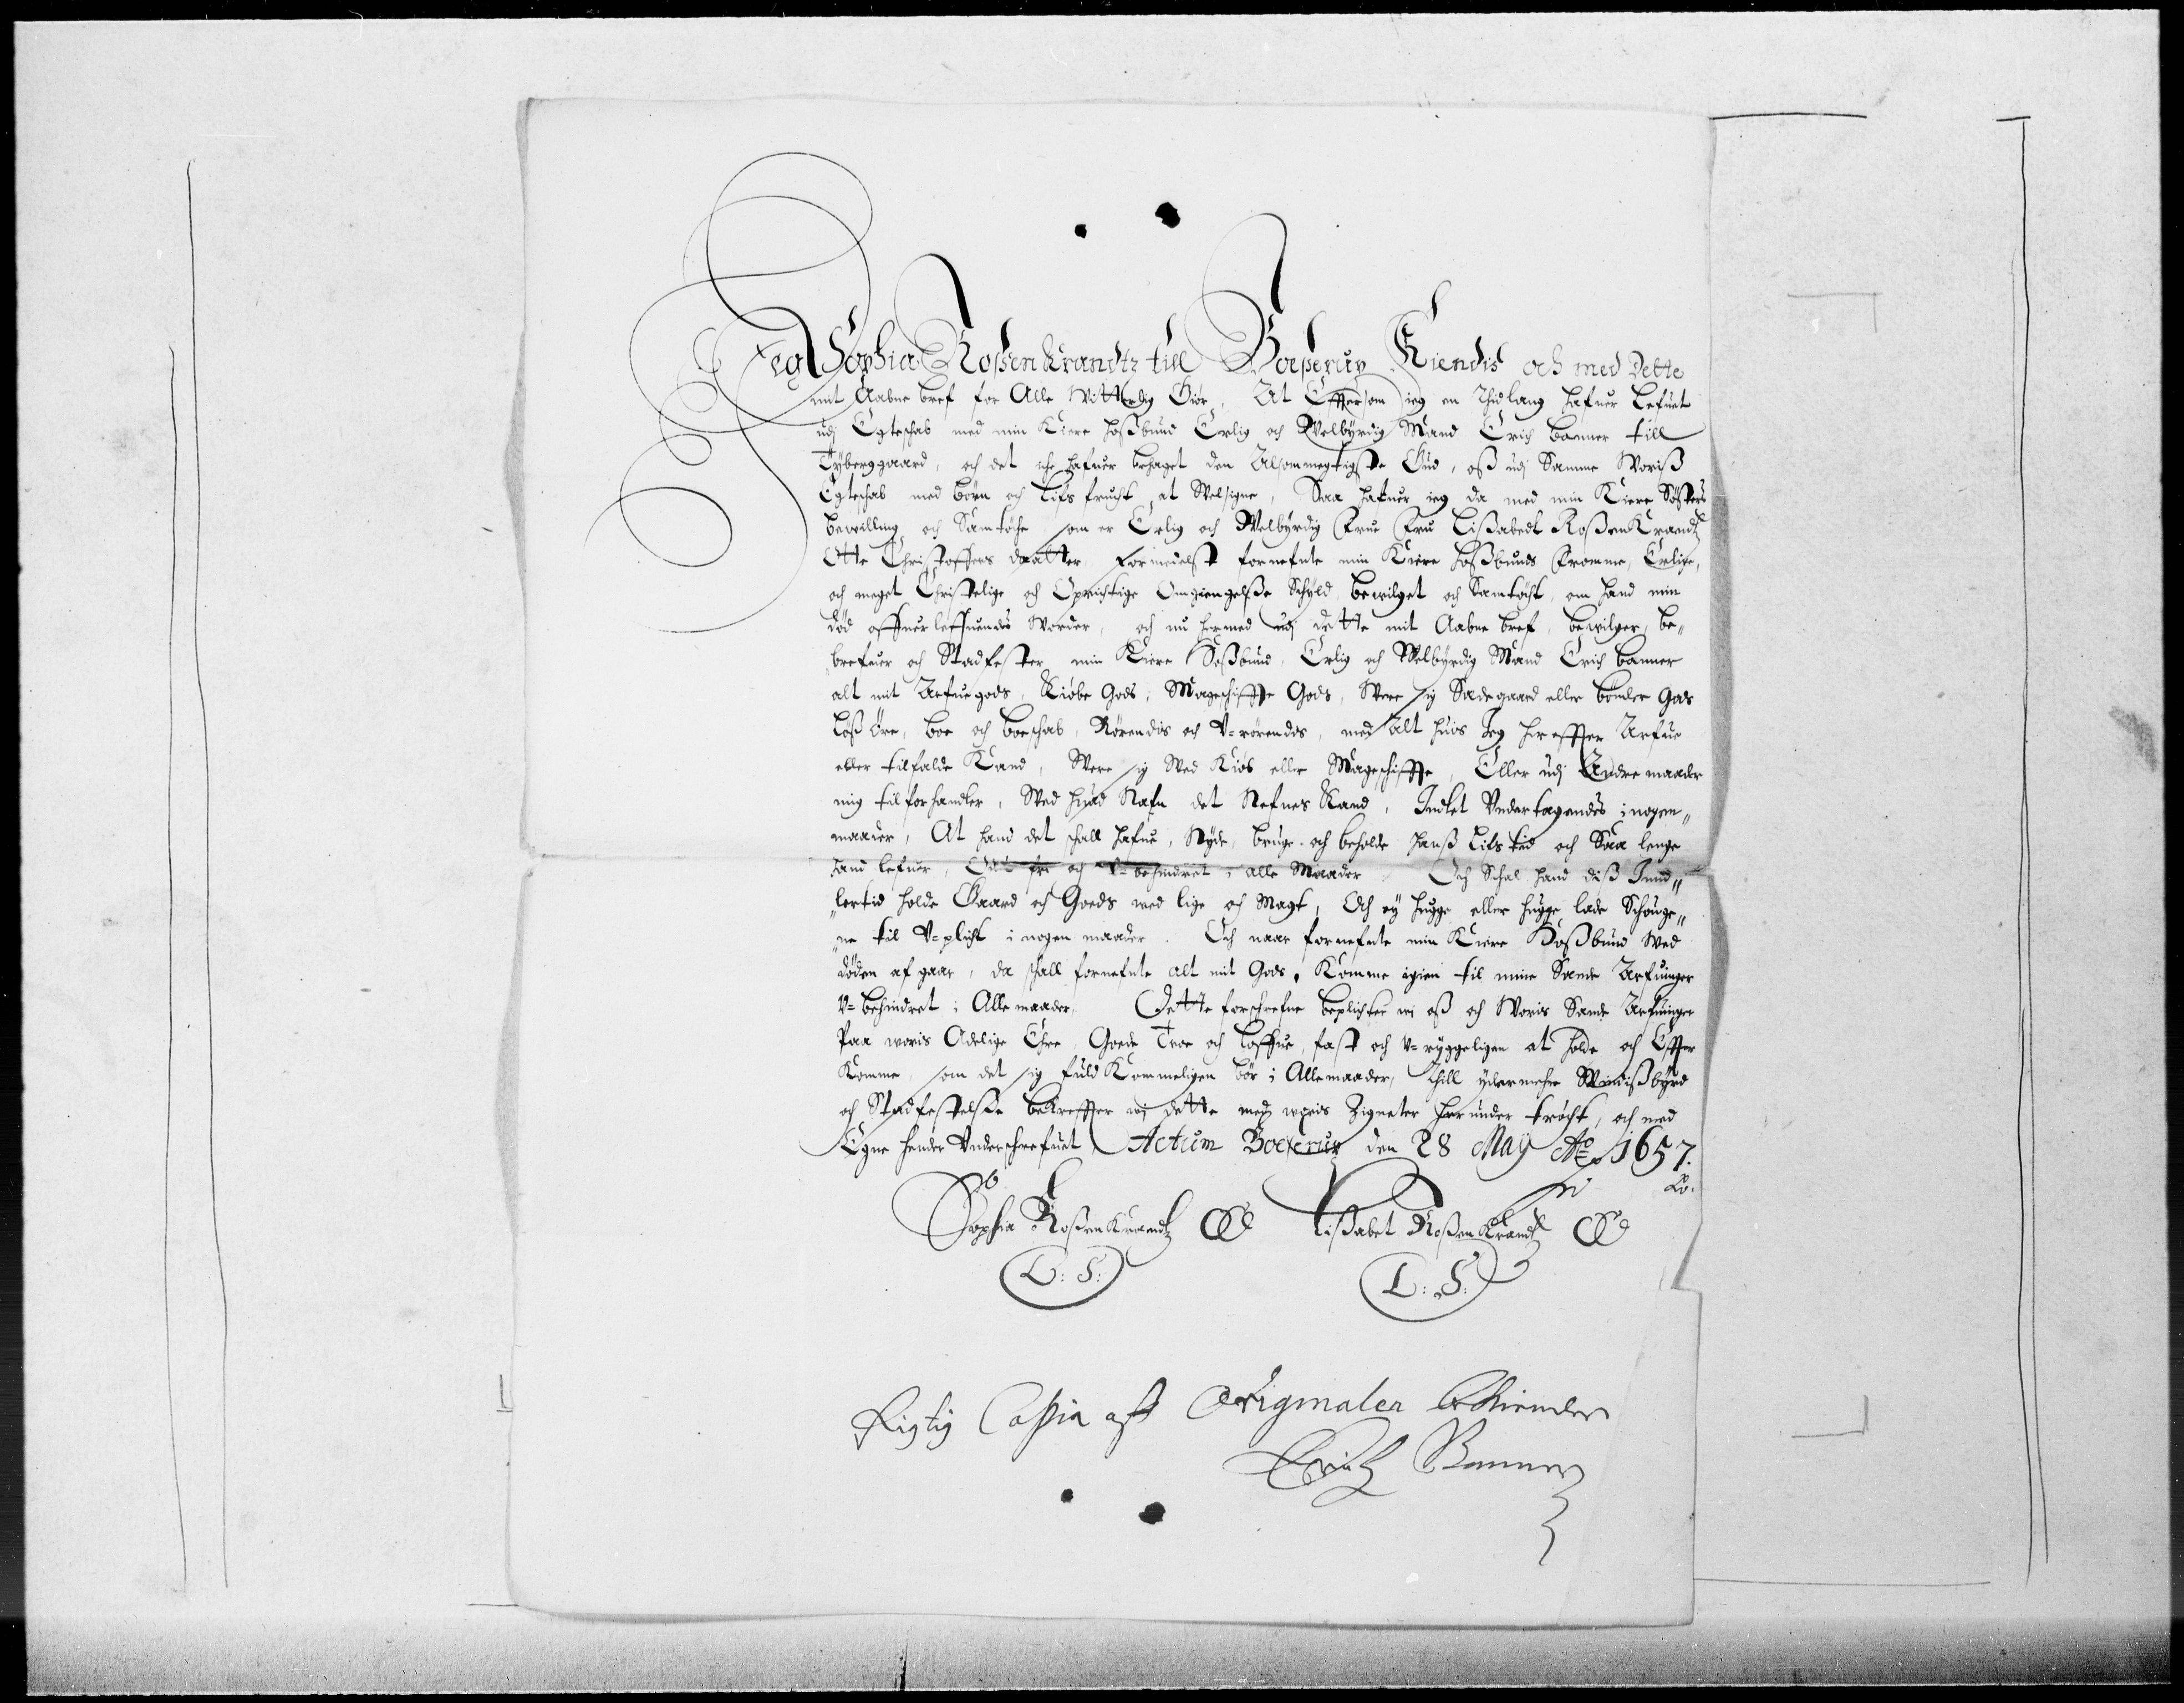 Jeg Sophia Roßenkrandtz till Boeserup Kiendis och med Dette
mit Aabne bref for Alle Witterlig Giør, At Effterssom ieg en Thidlang hafuer Lefuet
udj Egteschab med min Kiere hoßbund Erlig och Welbyrdig Mand Erich Banner till
Tyberggaard, och det iche hafuer behaget den Alsommegtigste Gud, oß udj Samme Woriß
Egteschab med børn och Lifs frucht at Welsigne, Saa hafuer ieg da med min Kiere Søsters
bewilling och Samtøche som er Erlig och Welbyrdig Frue Fru Lißabedt Roßenkrandtz
Otte Christoffers daatter, formedelst fornefnte min Kiere hoßbunds Fromme, Erlige,
och meget Christelige och Oprichtige Omgiengelße Schyld, bewilget och Samtøcht, om hand min
død offuerleffuendis Worder, och nu hermed udj dette mit Aabne bref, bewilger, be„
brefuer och Stadfester min Kiere Hoßbund, Erlig och Welbyrdig Mand Erich Banner
alt mit Arfuegods, Kiøbe Gods, Mageschiffte Gods, Were sig Sædegaard eller bønder Gods
Løß Øre, boe och boeschab, Rørendis och V=rørendes, med alt huis Jeg hereffter Arfue
eller tilfalde Kand, Were sig Wed Kiøb eller Mageschiffte, Eller udj Andre maader
mig tilforhandler, Wed huad Nafn det Nefnes Kand, Indtet Vndertagendes i nogen„
maader, At hand det schall hafue, Nyde, bruge och beholde hanß Lifs tid och Saa lenge
hand lefuer, Qvit fri och V=behindret i alle Maader. Och Schal hand diß Jmid„
„lertid holde Gaard och Goeds wed lige och Magt, Och ey hugge eller hugge lade Schouge„
„ne til V=plicht i nogen maader. Och naar fornefnte min Kiere Hoßbund Wed
døden afgaar, da schall fornefnte alt mit Gods, Komme igien til mine Sande Arfuinger
V=behindret i Alle maader. Dette forschrefne beplichter wi oß och Woris Sande Arfuinger
Paa woris Adelige Ehre, Goede Troe och Loffue, fast och V=ryggeligen at holde och Effter
Komme, som det sig fuld Kommeligen bør i Allemaader, Thill ydermehre Windißbyrd
och Stadfestelße bekreffter wi dette med woris Zigneter herunder trøcht, och med
Egne hender Underschrefuet Actum Boeserup den 28 Maÿ Ao 1657.
Sophia Roßenkrandtz Lißabet Roßenkrandtz
L: S: L: S:
Rigtig Copia aff Originalen bekiender
Erich Banner